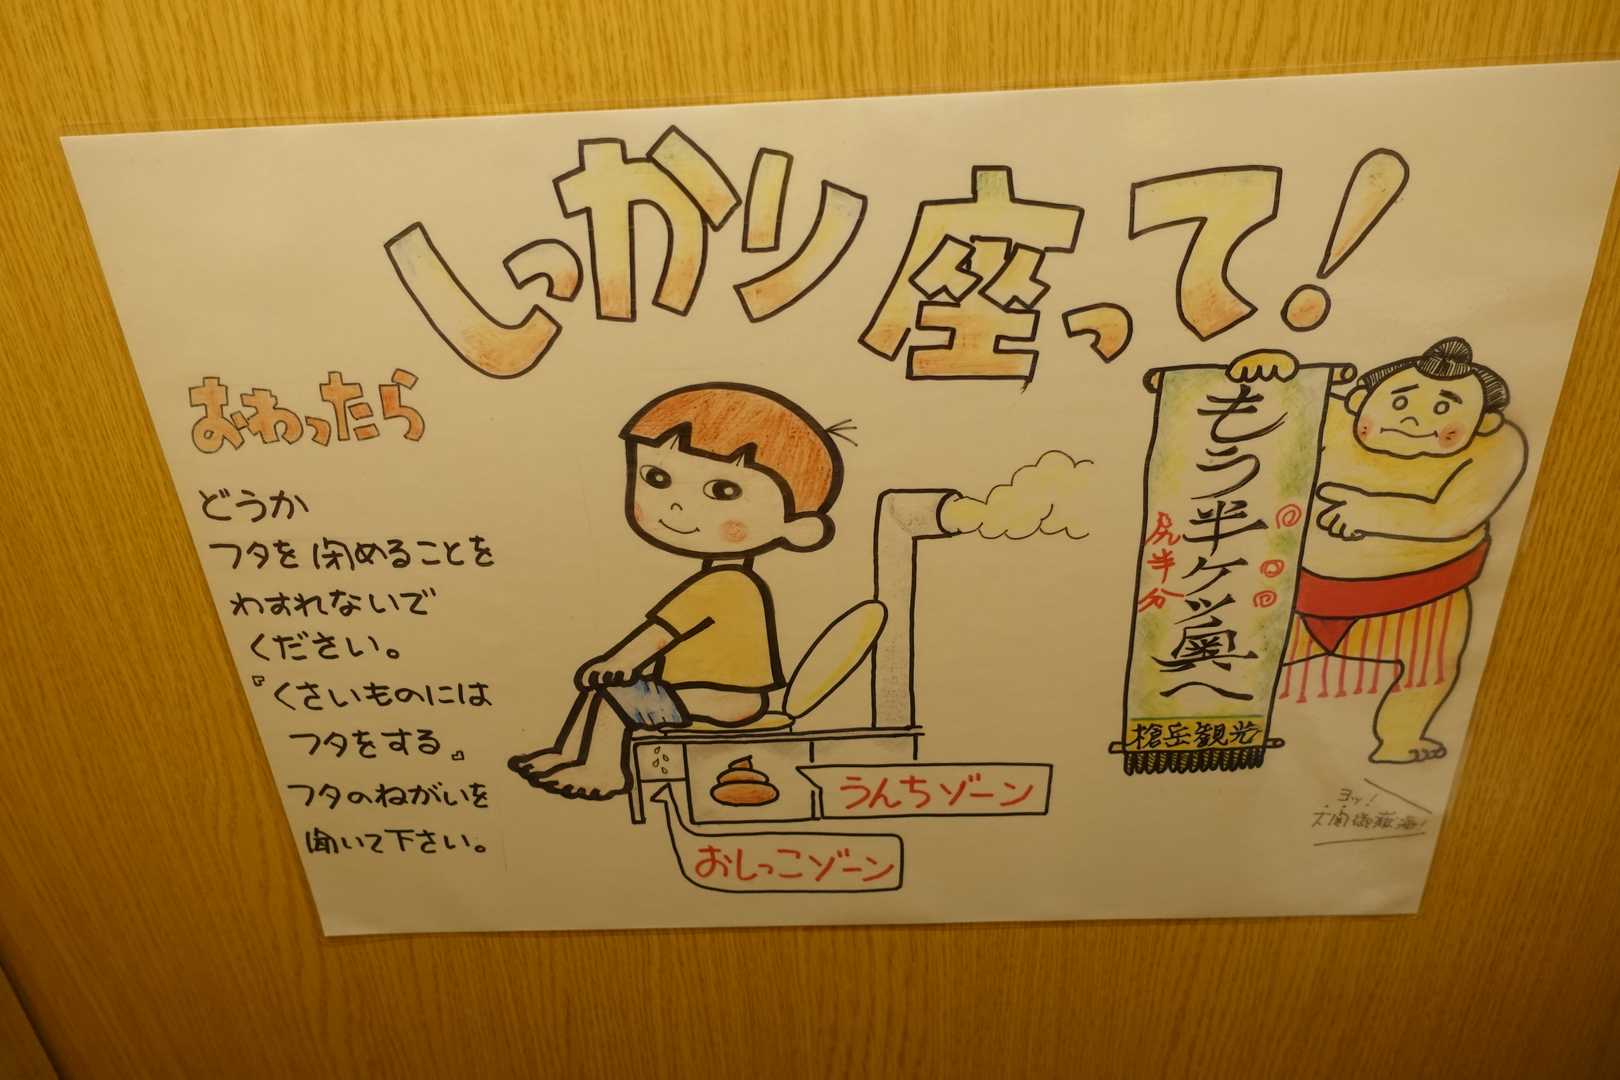 しっかり座って!
おわったら
どうか
フタを閉めることを
わすれないで
ください。
『くさいものには
フタをする』
フタのねがいを
聞いて下さい。
うんちゾーン
おしっこゾーン
もう半ケツ奥へ
尻半分
槍岳観光
ヨッ!
大関御嶽海!